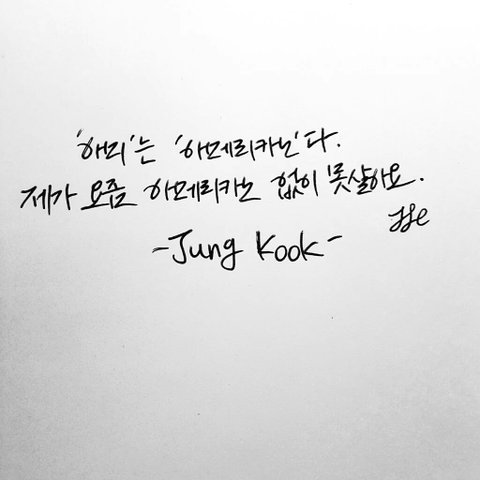 '아미'는 '아메리카노'다.
제가 요즘 아메리카노 없이 못살아요.
-Jung Kook-